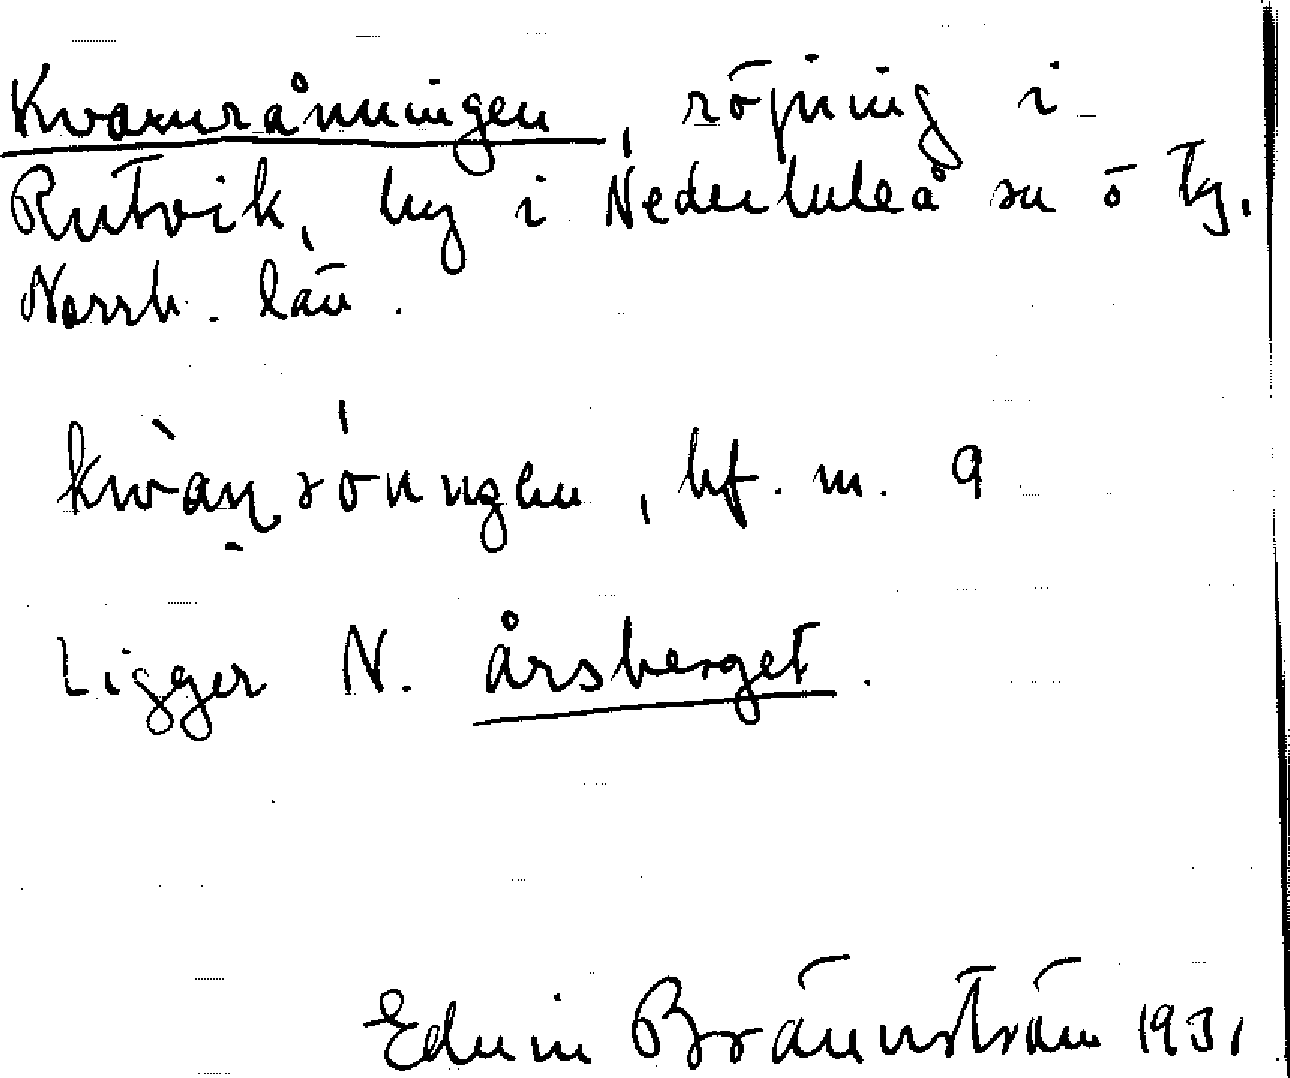 Kvarnrånningen, röjning i
Rutvik, by i Nederluleå sn ö tg.
Norrb. län.
bf. m. 9
Ligger N. årsberget.
Edvin Brännström 1931